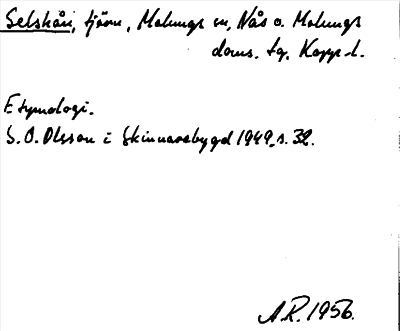 Selskån, tjärn, Malungs sn, Nås o. Malungs
doms. tg, Kopp. l.
Etymologi.
S. O. Olsson i Skinnarebygd 1949, s. 32.
A R. 1956.